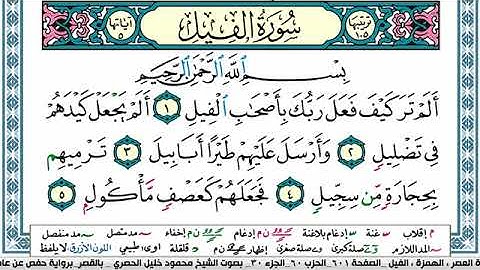 ترتيبها ١٠٥ سُورَةُ الْفِيلِ آياتها ٥
بِسْمِ اللَّهِ الرَّحْمَٰنِ الرَّحِيمِ
أَلَمْ تَرَ كَيْفَ فَعَلَ رَبُّكَ بِأَصْحَابِ الْفِيلِ ١ أَلَمْ يَجْعَلْ كَيْدَهُمْ
فِي تَضْلِيلٍ ٢ وَأَرْسَلَ عَلَيْهِمْ طَيْرًا أَبَابِيلَ ٣ تَرْمِيهِم
بِحِجَارَةٍ مِّن سِجِّيلٍ ٤ فَجَعَلَهُمْ كَعَصْفٍ مَّأْكُولٍ ٥
م إقلاب غنة إدغام بلاغنة ن م إدغام ن م إخفاء مد متصل مد منفصل
مد اللازم صلة كبرى صلة صغرى إظهار ن م قلقلة اوى طبيعي اللون الأزرق لا يلفظ
العصر ، الهمزة ، الفيل . الصفحة ٦٠١ الحزب ٦٠ الجزء ٣٠ . بصوت الشيخ محمود خليل الحصري . بالقصر برواية حفص عن عا